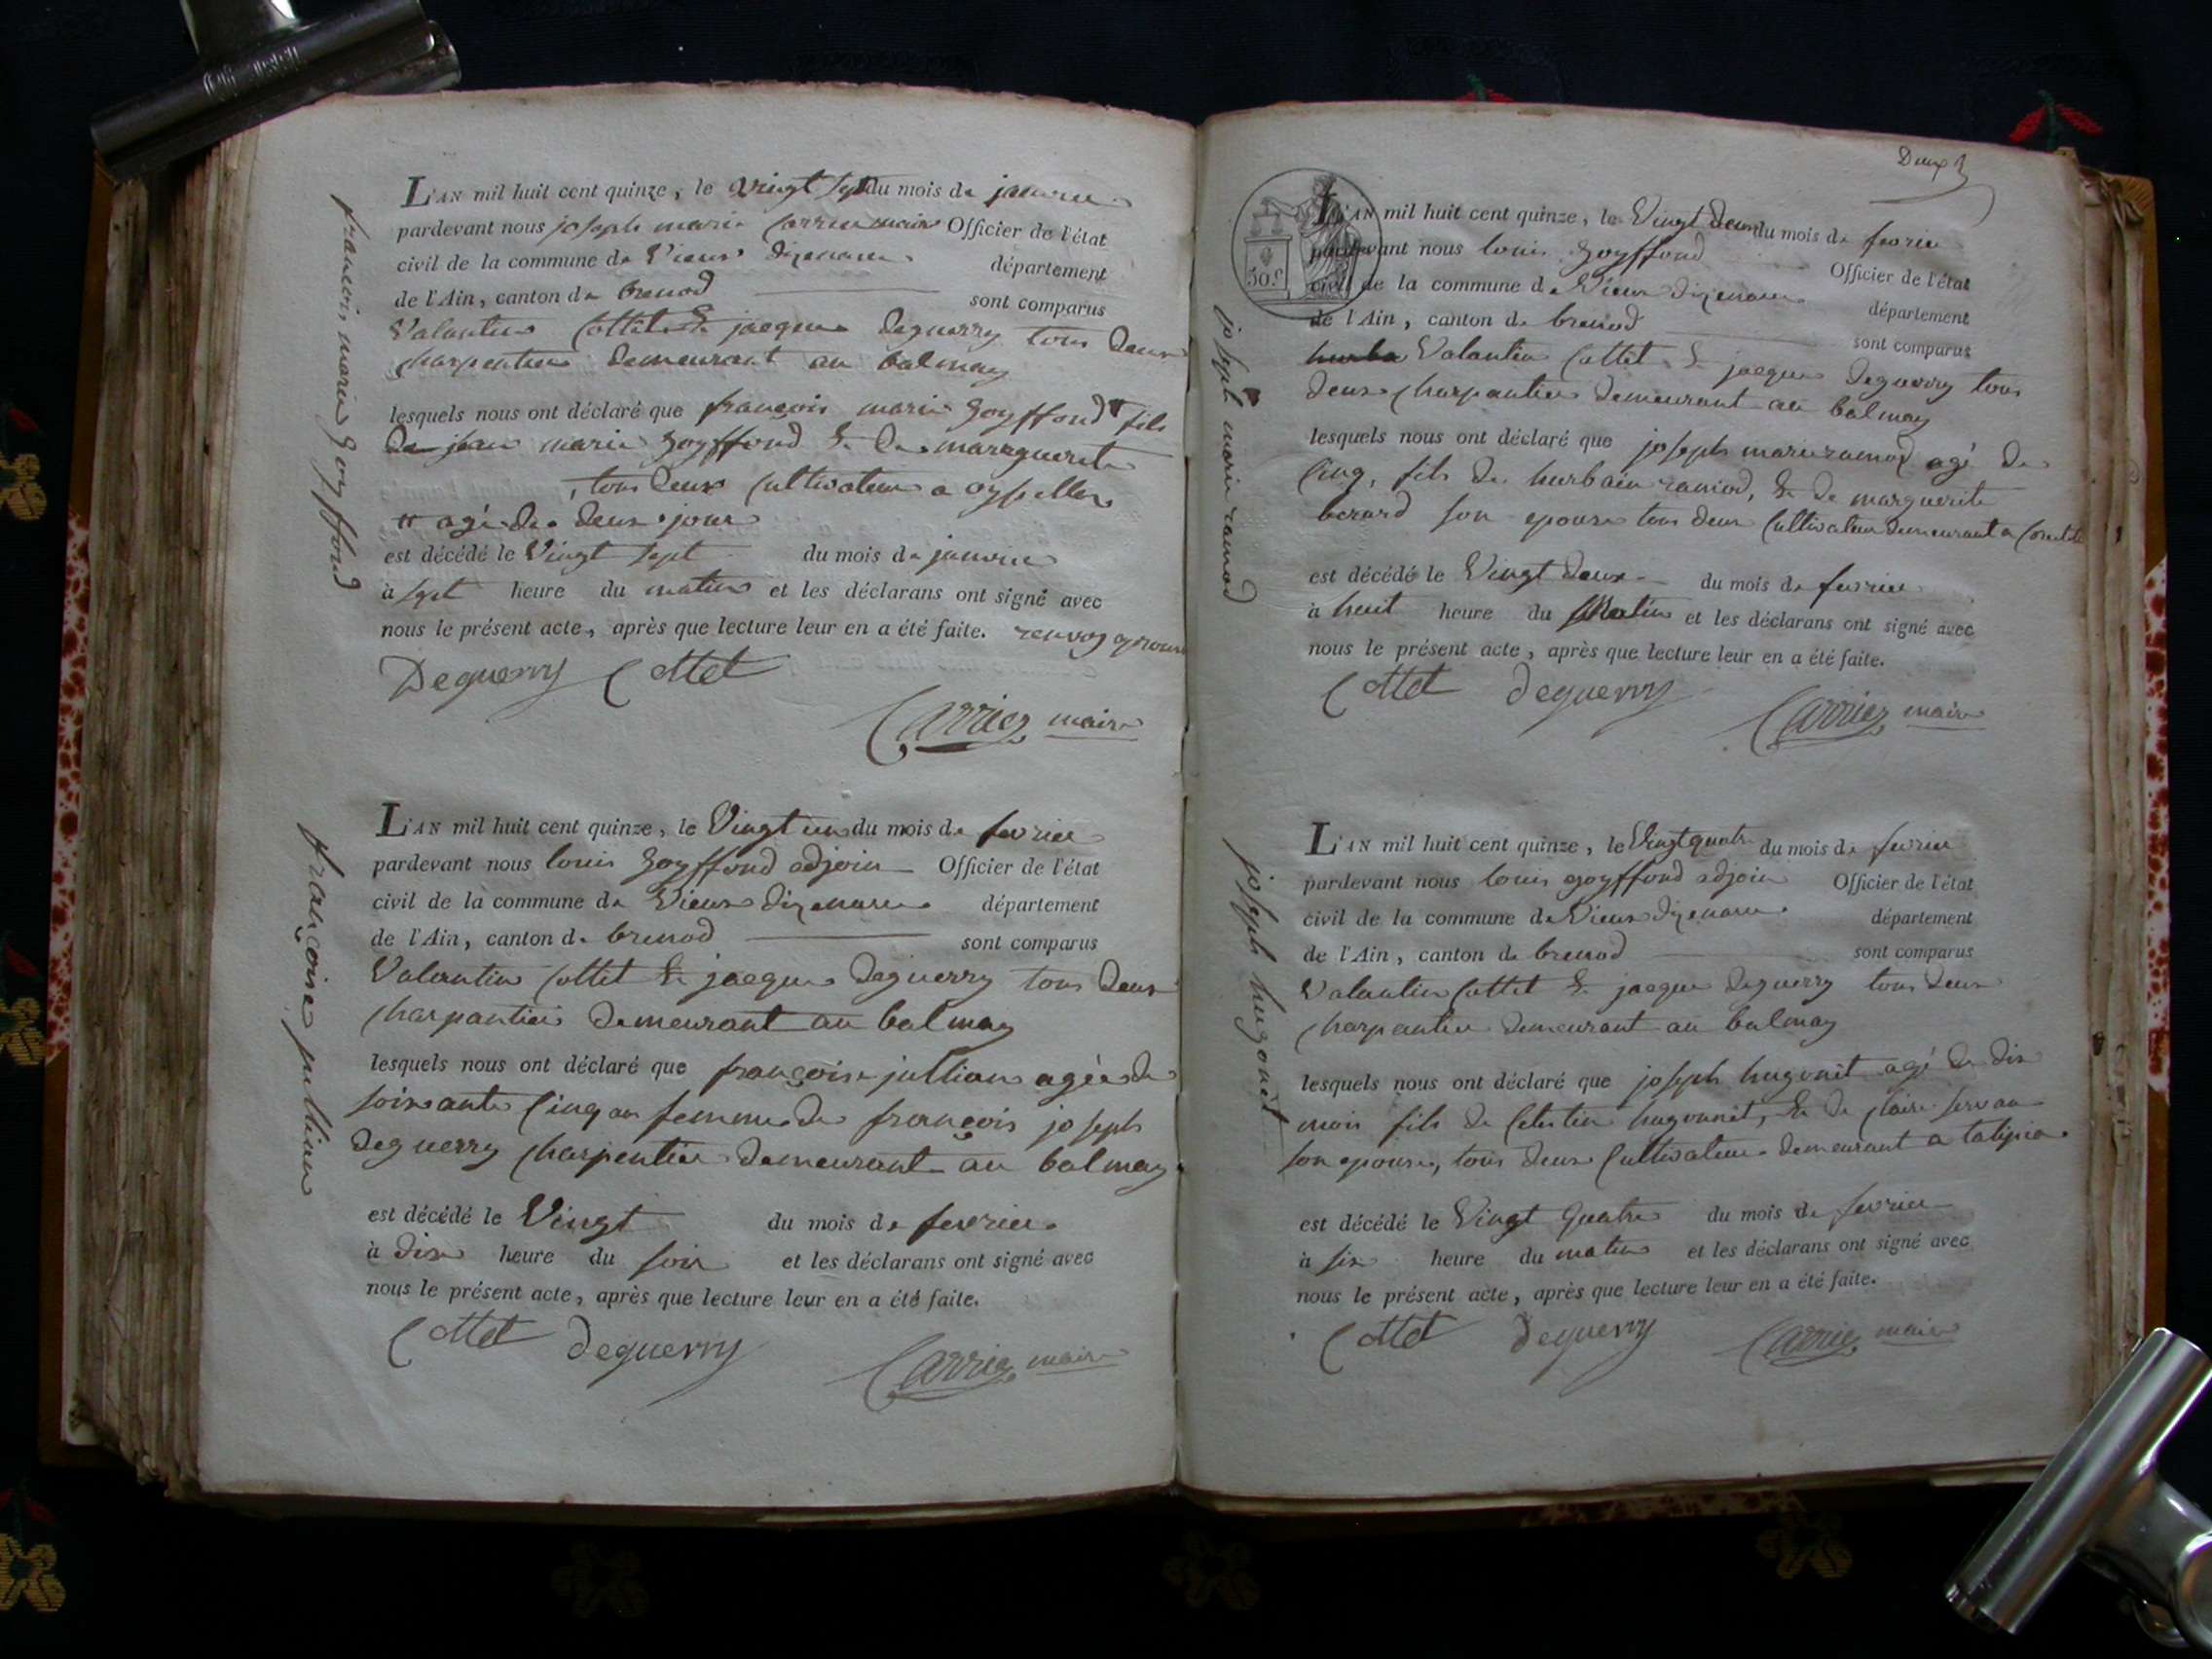 françois marie goyffond
L'AN mil huit cent quinze, le vingt sept du mois de janvier
pardevant nous joseph marie Carrier maire Officier de l'état
civil de la commune de Vieux dizenave département
de l'Ain, canton de brenod sont comparus
Valantin Cottet & jacque Deguerry tous Deux
charpentier Demeurant au balmay
lesquels nous ont déclaré que françois marie goyffond fils
De jean marie goyffond & De marguerite
, tous Deux Cultivateur a
agé De Deux jour
est décédé le Vingt sept du mois de janvier
à sept heure du matin et les déclarans ont signé avec
nous le présent acte, après que lecture leur en a été faite. renvoy
Deguerry Cottet
Carrier maire
françoise jullian
L'AN mil huit cent quinze, le Vingt un du mois de fevrier
pardevant nous louis goyffond adjoin Officier de l'état
civil de la commune de Vieux dizenave département
de l'Ain, canton de brenod sont comparus
Valantin Cottet & jacque Deguerry tous Deux
charpantier Demeurant au balmay
lesquels nous ont déclaré que françoise jullian agée de
soixante Cinq an femme de françois joseph
Deguerry charpentier Demeurant au balmay
est décédé le Vingt du mois de fevrier
à dix heure du soir et les déclarans ont signé avec
nous le présent acte, après que lecture leur en a été faite.
Cottet deguerry
Carrier maire
Deux
joseph marie ramod
50 c
L'AN mil huit cent quinze, le Vingt Deux du mois de fevrier
pardevant nous louis goyffond Officier de l'état
civil de la commune de Vieux dizenave département
de l'Ain, canton de brenod sont comparus
Valantin Cottet & jacque Deguerry tous
Deux charpantier Demeurant au balmay
lesquels nous ont déclaré que joseph marie ramod agé De
Cinq, fils De hurbain ramod, & De marguerite
berard son epouse tous Deux Cultivateur Demeurant a
est décédé le Vingt Deux du mois de fevrier
à huit heure du Matin et les déclarans ont signé avec
nous le présent acte, après que lecture leur en a été faite.
Cottet deguerry
Carrier maire
joseph hugonet
L'AN mil huit cent quinze, le Vingt quatre du mois de fevrier
pardevant nous louis goyffond adjoin Officier de l'état
civil de la commune de Vieux dizenave département
de l'Ain, canton de brenod sont comparus
Valantin Cottet & jacque Deguerry tous Deux
charpantier Demeurant au balmay
lesquels nous ont déclaré que joseph hugonet agé De Dix
mois fils De Celestin hugonnet, & De Claire
son epouse, tous Deux Cultivateur Demeurant a
est décédé le Vingt Quatre du mois de fevrier
à six heure du matin et les déclarans ont signé avec
nous le présent acte, après que lecture leur en a été faite.
Cottet deguerry
Carrier maire